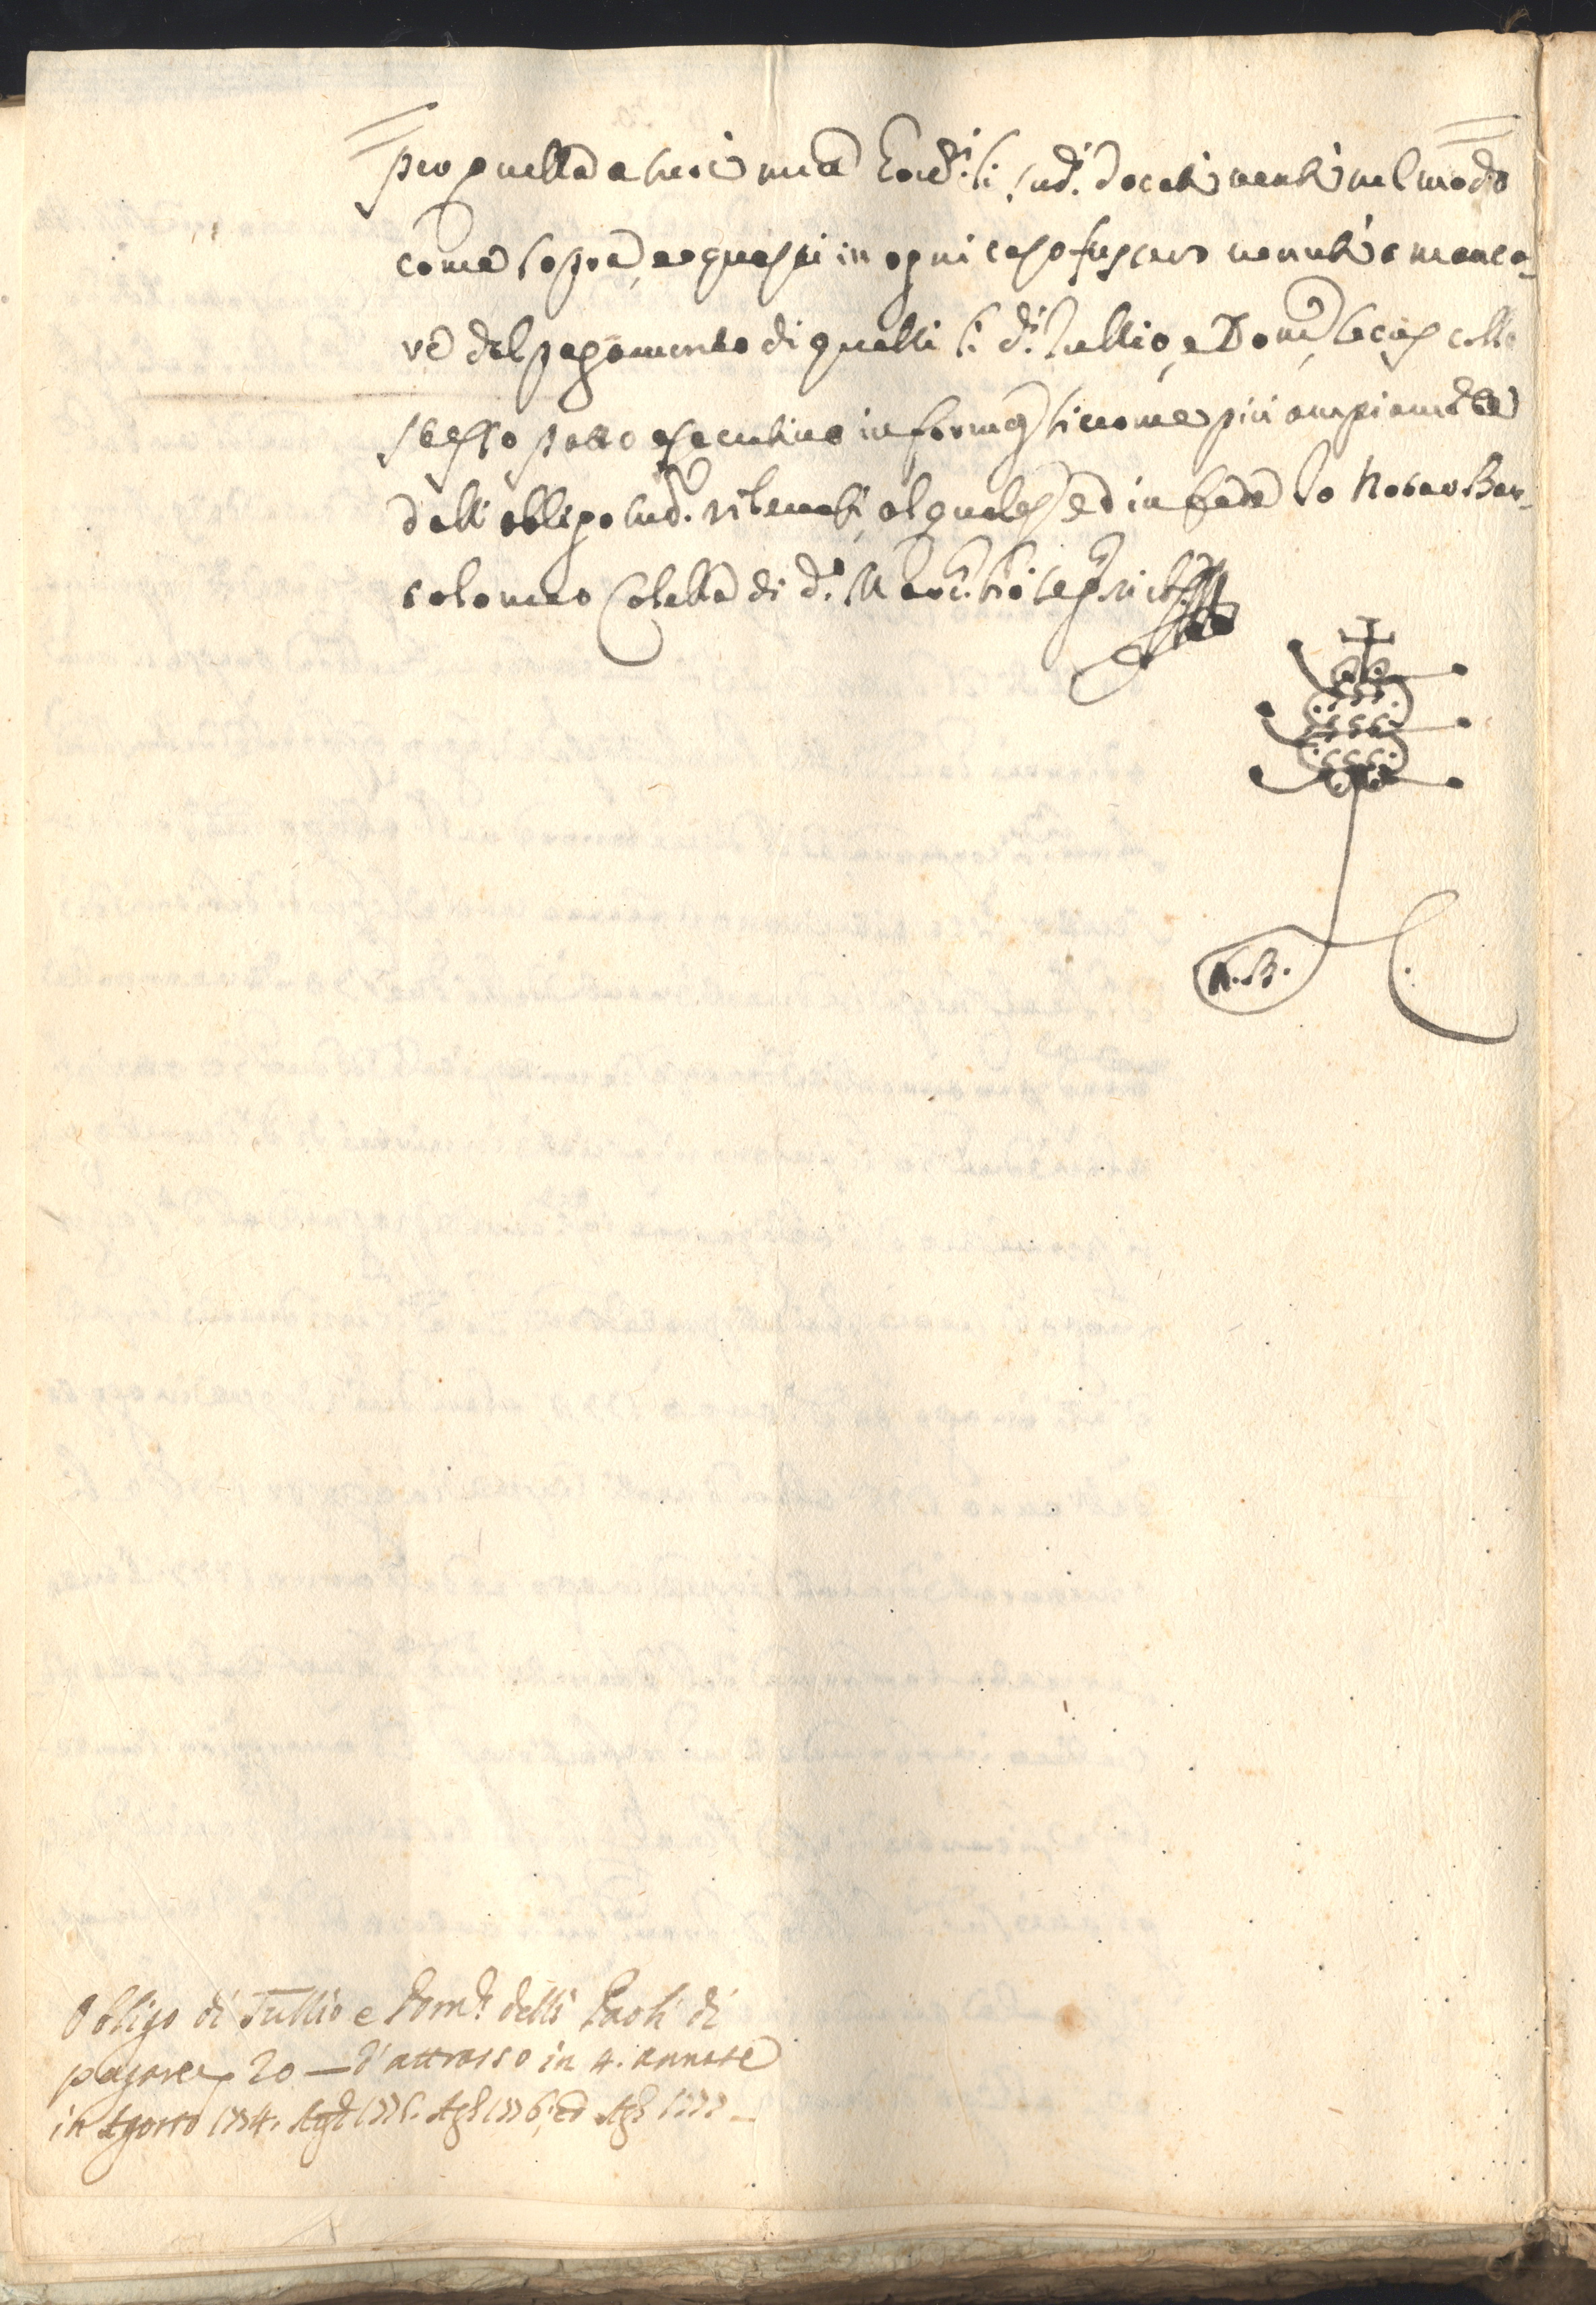 pro quella a tutti sud.i docati venti nel modo
come sopra, e quasi in ogni caso fussero venuti a manca-
re del pagamento di quelli li d.i Tullio, e Dom.co colle
stesso patto esecutivo in forma, sicome più ampiam.te
dall'obligo sud.o al quale ed in fede Io Notar Bar-
tolomeo Colella di d.o
N.B. C.
Obligo di Tullio e Dom.co delli Paoli di
pagare 20 — d'attrasso in 4. annate
in Agosto 1774. Ag.to 1775. Ag.to 1776. ed Ag.to 1777 —